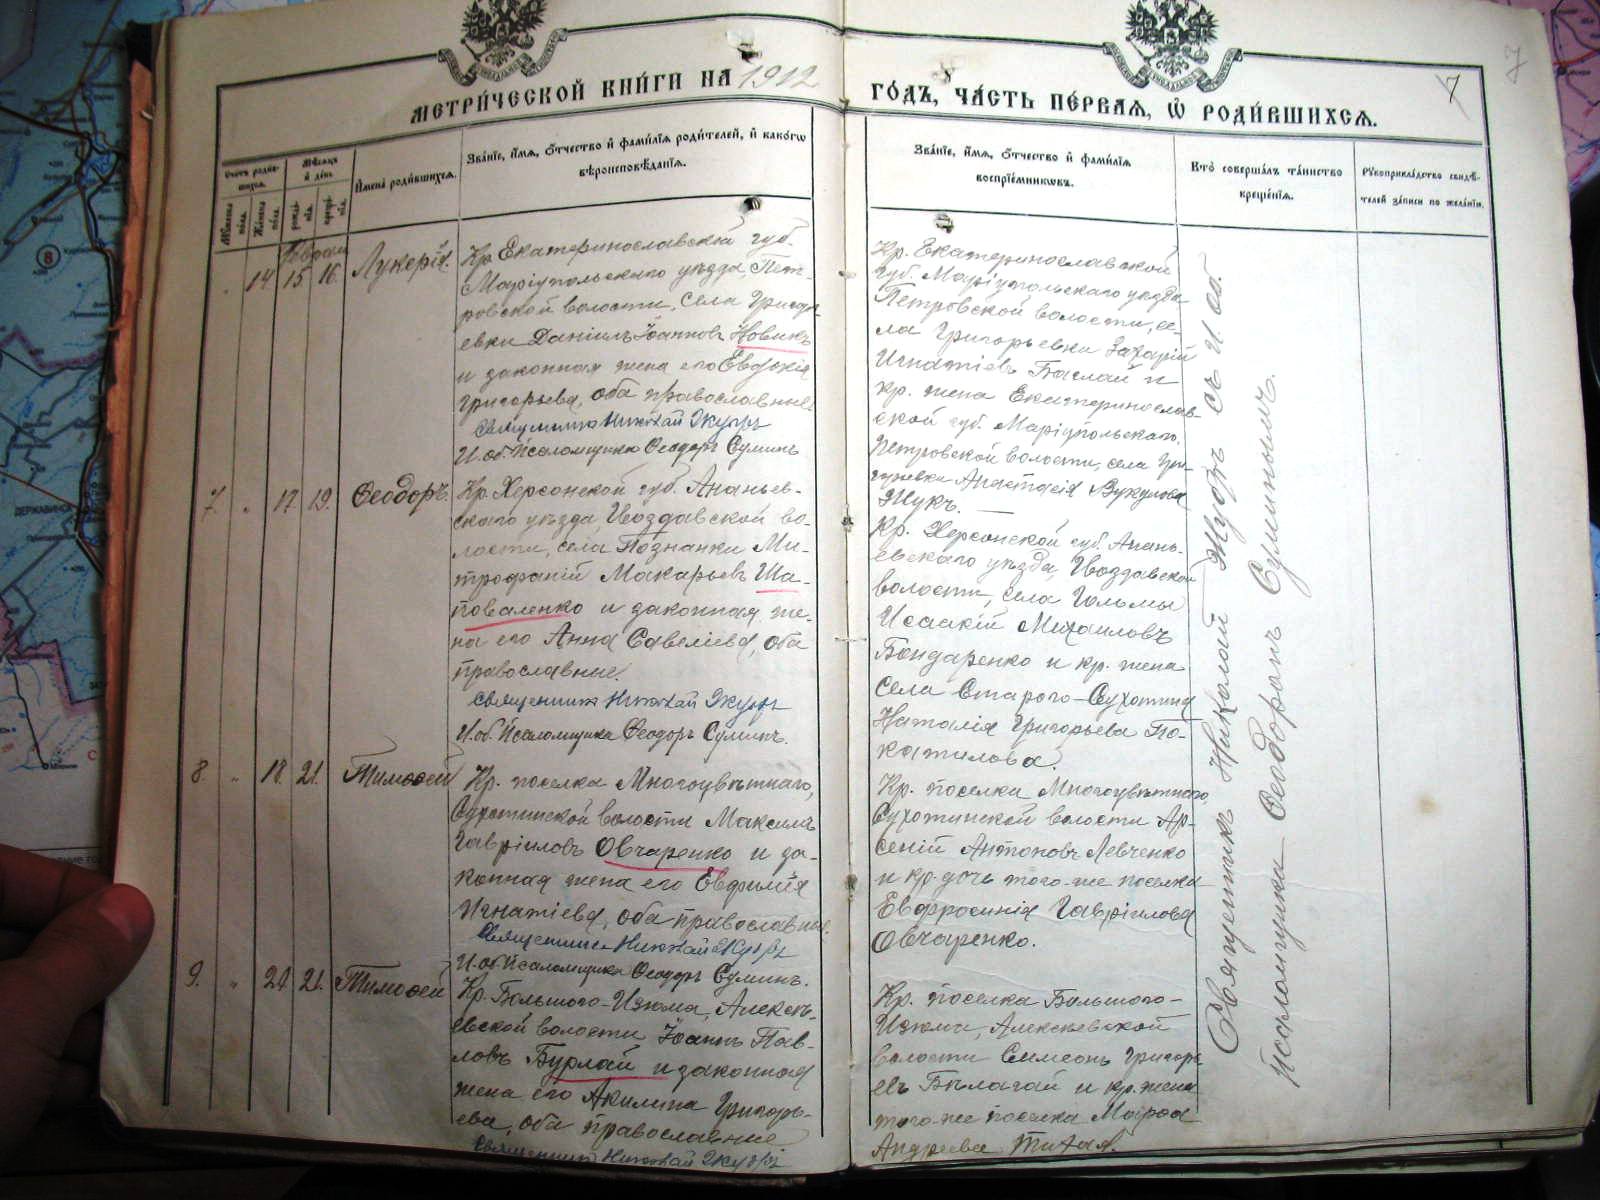 МЕТРИ́ЧЕСКОЙ КНИ́ГИ НА 1912
ГО́ДЪ, ЧА́СТЬ ПЕ́РВАЯ, Ѡ РОДИ́ВШИХСѦ.
7
7
Счетъ роди́в-
шихся.
Мужеска по́ла.
Же́нска по́ла.
Мѣ́сяцъ
и́ де́нь
рожде́-
нїя.
креще́-
нїя.
И҆мена̀ роди́вшихся.
Зва́нїе, и҆́мя, ѻ҆́тчество и҆ фами́лїѧ роди́телей, и҆ како́гѡ
вѣроисповѣ́данїя.
Зва́нїе, и҆́мя, ѻ҆́тчество и҆ фами́лїѧ
воспрїе́мникѡвъ.
Кто̀ соверша́лъ та́инство
креще́нїя.
Рꙋкоприкла́дство свидѣ́-
телей за́писи по жела́нїю.
Февраль
14. 15. 16. Лукерія.
Кр. Екатеринославской губ.
Маріупольскаго уѣзда, Пет-
ровской волости, села Григорь-
евки Даніилъ Іоанновъ Новикъ
и законная жена его Евдокія
Григорьева, оба православные
Священникъ Николай Жуфъ
И. об. Псаломщика Ѳеодоръ Суминъ
Кр. Екатеринославской
губ. Маріупольскаго уѣзда
Петровской волости, се-
ла Григорьевки Захарій
Игнатіевъ Баглай и
кр. жена Екатеринослав-
ской губ. Маріупольскаго,
Петровской волости, села Гри-
горьевки Анастасія Вукулова
Жукъ.
7. „ 17. 19. Ѳеодоръ.
Кр. Херсонской губ. Ананьев-
скаго уѣзда, Гвоздавской во-
лости, села Познанки Ми-
трофаній Макарьевъ Ша-
поваленко и законная же-
на его Анна Савеліева, оба
православные.
Священникъ Николай Жуфъ
И. об. Псаломщика Ѳеодоръ Суминъ.
Кр. Херсонской губ. Анань-
евскаго уѣзда, Гвоздавской
волости, села Гольмы
Исаакій Михаиловъ
Бондаренко и кр. жена
села Старого-Сухотина
Наталія Григорьева По-
катилова.
8. „ 18. 21. Тимоѳей
Кр. поселка Многоцвѣтнаго,
Сухотинской волости Максимъ
Гавріиловъ Овчаренко и за-
конная жена его Евфимія
Игнатіева, оба православные.
Священникъ Николай Жуфъ
И. об. Псаломщика Ѳеодоръ Суминъ.
Кр. поселка Многоцвѣтнаго,
Сухотинской волости Ар-
сеній Антоновъ Левченко
и кр. дочь того-же поселка
Евфросинія Гавріилова
Овчаренко.
9. „ 20. 21. Тимоѳей
Кр. Большого-Изюма, Алексѣ-
евской волости Іоаннъ Пав-
ловъ Бурлай и законная
жена его Акилина Григорь-
ева, оба православные
Священникъ Николай Жуфъ
Кр. поселка Большого-
Изюма, Алексѣевской
волости Симеонъ Григорь-
евъ Билагай и кр. жена
того-же поселка Марѳа
Андреева Тихая.
Священникъ Николай Жуфъ съ И. об.
псаломщика Ѳеодоромъ Суминымъ.